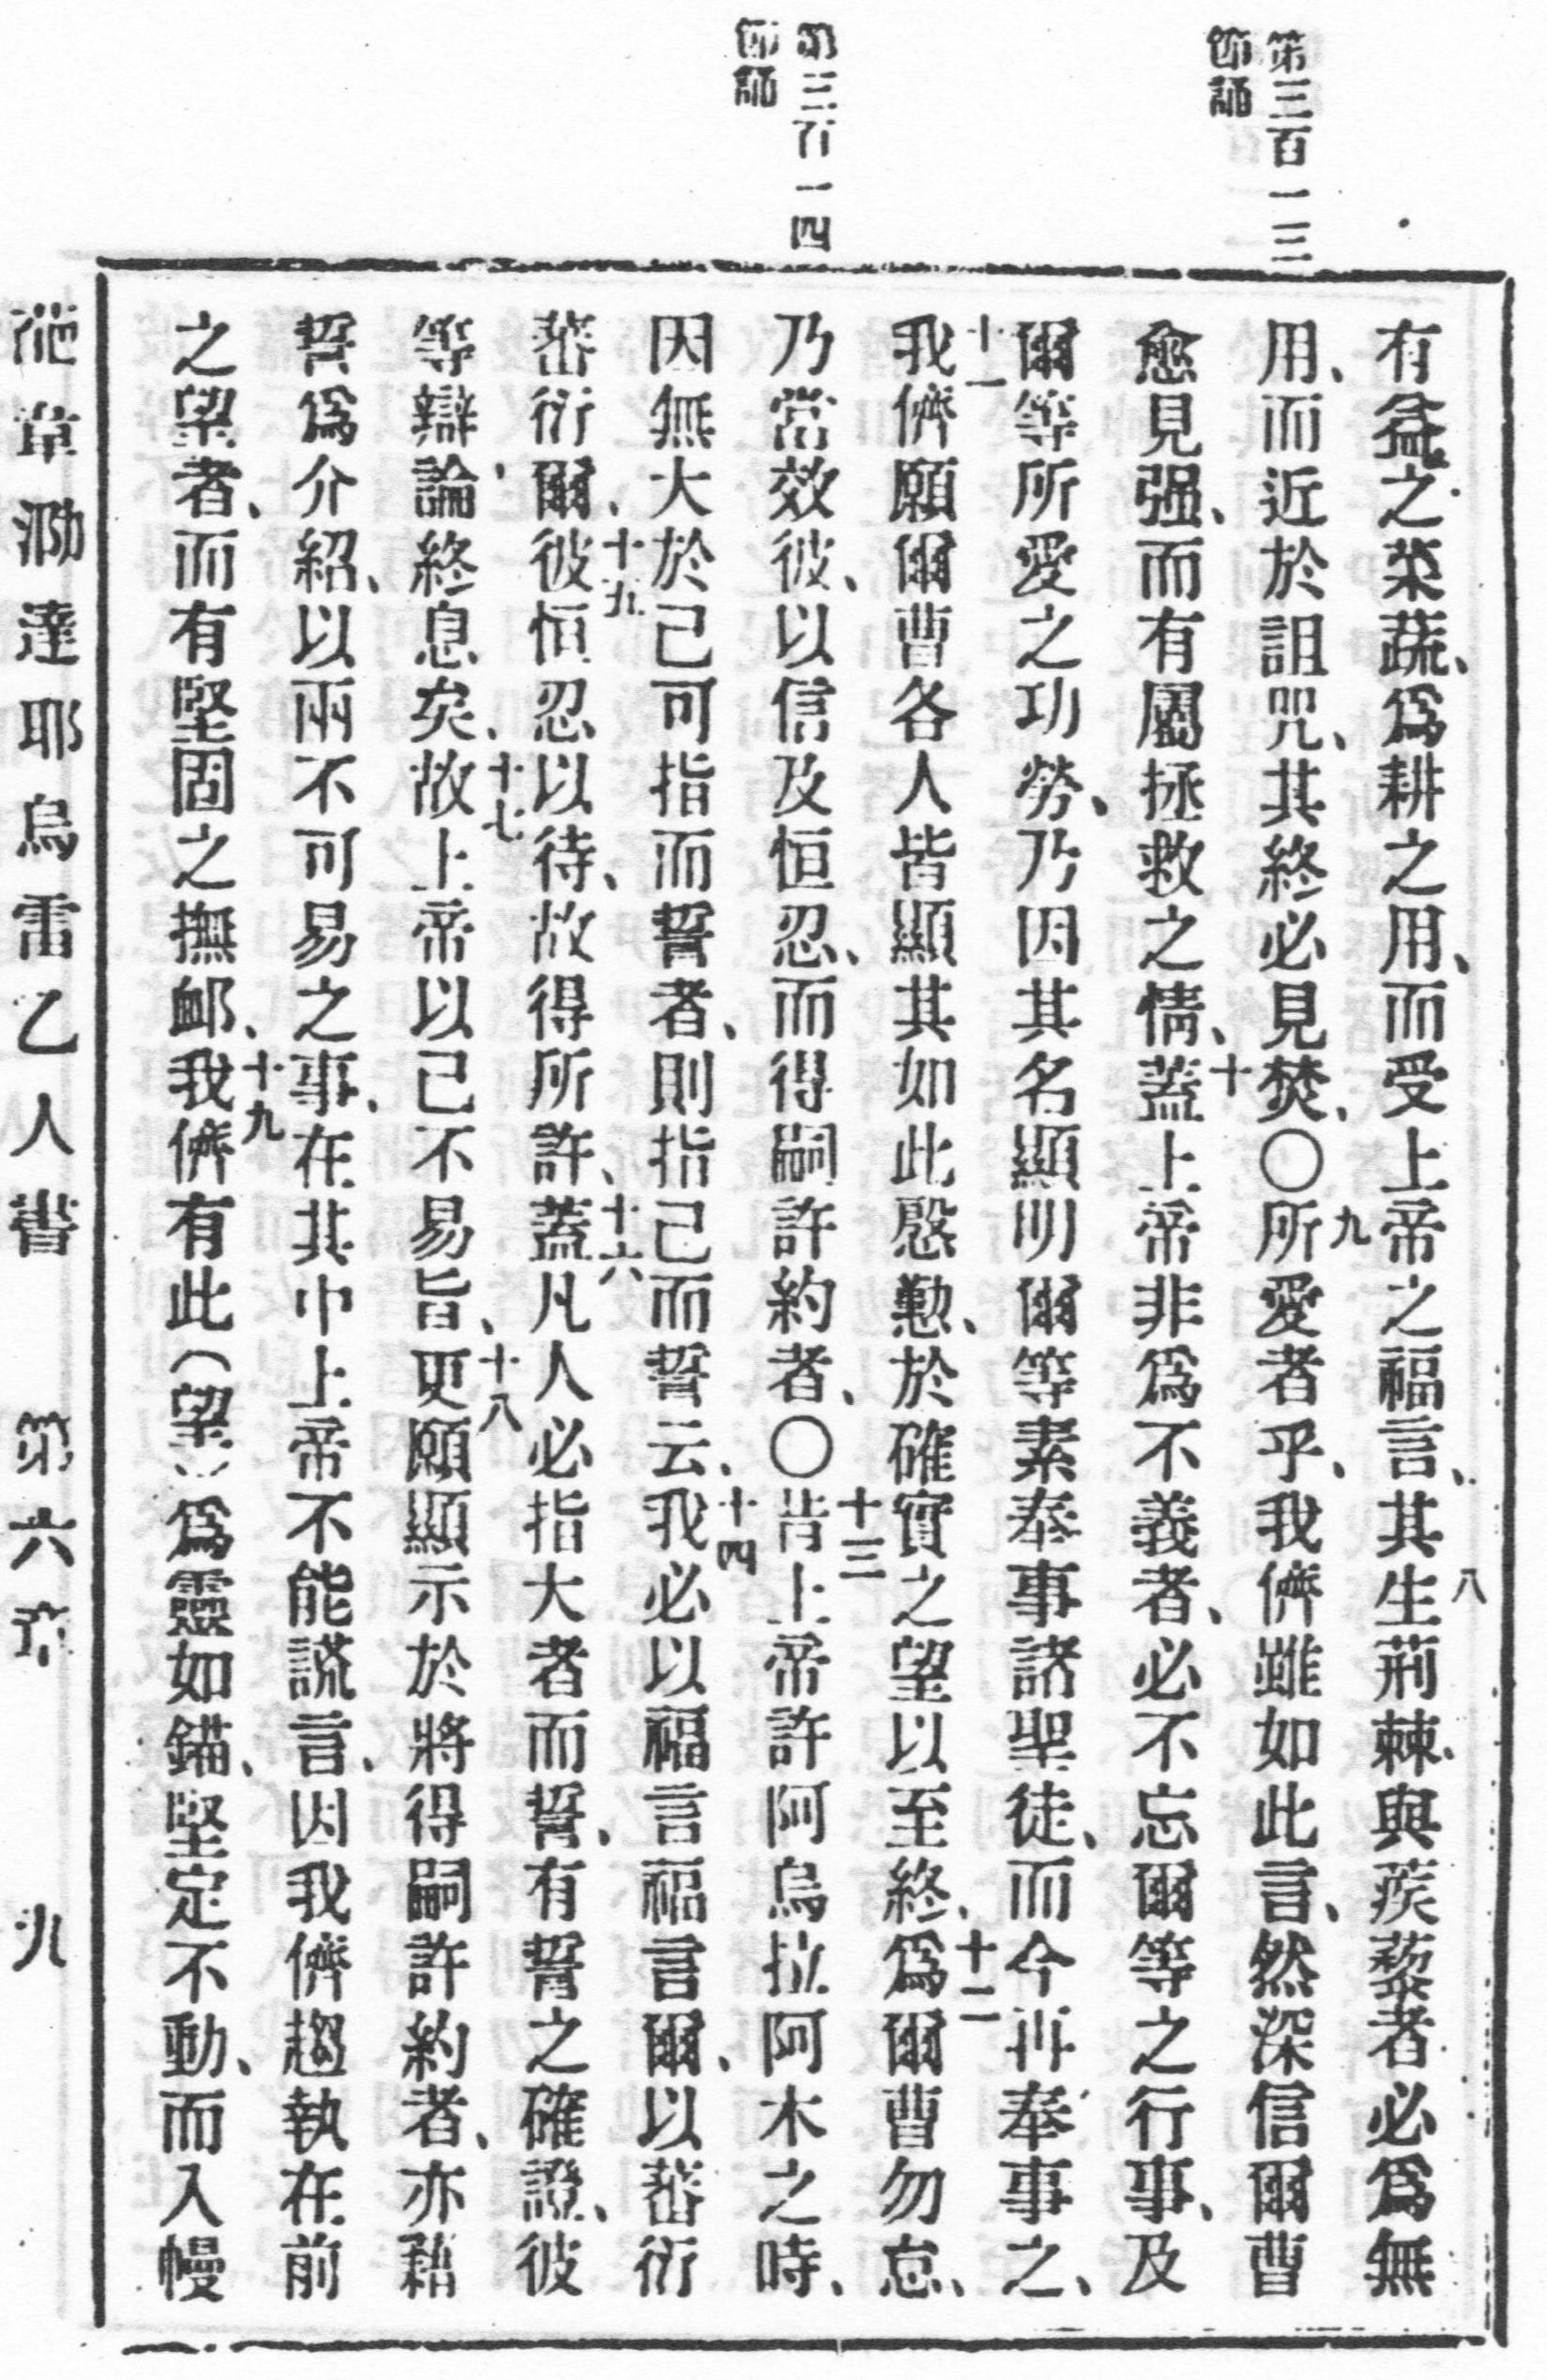 第三百一三
節誦
第三百一四
節誦
有益之菜蔬、爲耕之用、而受上帝之福言、八其生荊棘、與蒺藜者必爲無
用、而近於詛咒、其終必見焚、〇九所愛者乎、我儕雖如此言、然深信爾曹
愈見强、而有屬拯救之情、十蓋上帝非爲不義者、必不忘爾等之行事、及
爾等所愛之功勞、乃因其名顯明爾等素奉事諸聖徒、而今再奉事之、
十一我儕願爾曹各人皆顯其如此慇懃、於確實之望以至終、十二爲爾曹勿怠、
乃當效彼、以信及恒忍、而得嗣許約者、〇十三昔上帝許阿烏拉阿木之時、
因無大於己可指而誓者、則指己而誓云、十四我必以福言福言爾、以蕃衍
蕃衍爾、十五彼恒忍以待、故得所許、十六蓋凡人必指大者而誓、有誓之確證、彼
等辯論終息矣、十七故上帝以己不易旨、十八更願顯示於將得嗣許約者、亦藉
誓爲介紹、以兩不可易之事、在其中上帝不能謊言、因我儕趨執在前
之望者、而有堅固之撫卹、十九我儕有此(望)爲靈如錨、堅定不動、而入幔
達耶烏雷乙人書　第六章　九